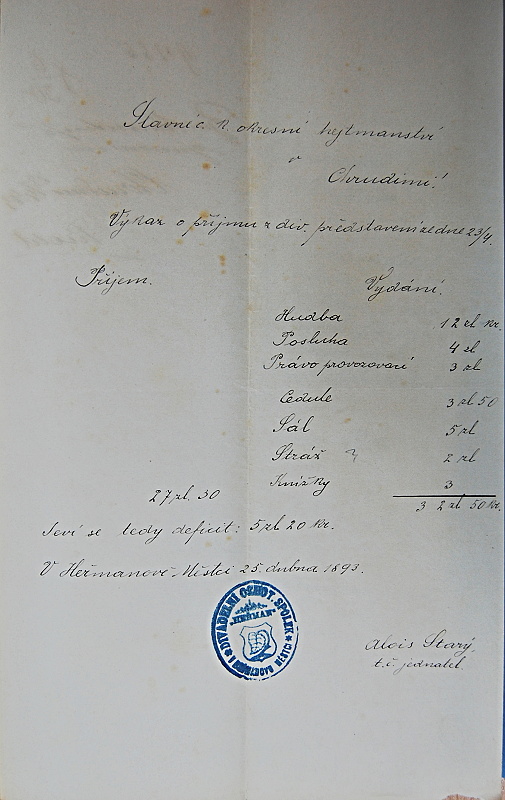 Slavné c. k. okresní hejtmanství
v
Chrudimi!
Výkaz o příjmu z div. představení ze dne 23/4.
Příjem. Vydání.
Hudba 12 zl kr.
Posluha 4 zl
Právo provozovací 3 zl
Cedule 3 zl 50
Sál 5 zl
Stráž 2 zl
Knížky 3
27 zl. 30 32 zl 50 kr.
Jeví se tedy deficit: 5 zl 20 kr.
V Heřmanově Městci 25. dubna 1893.
DIVADELNÍ OCHOT. SPOLEK
"HEŘMAN"
MĚSTCI
Alois Starý,
t. č. jednatel.